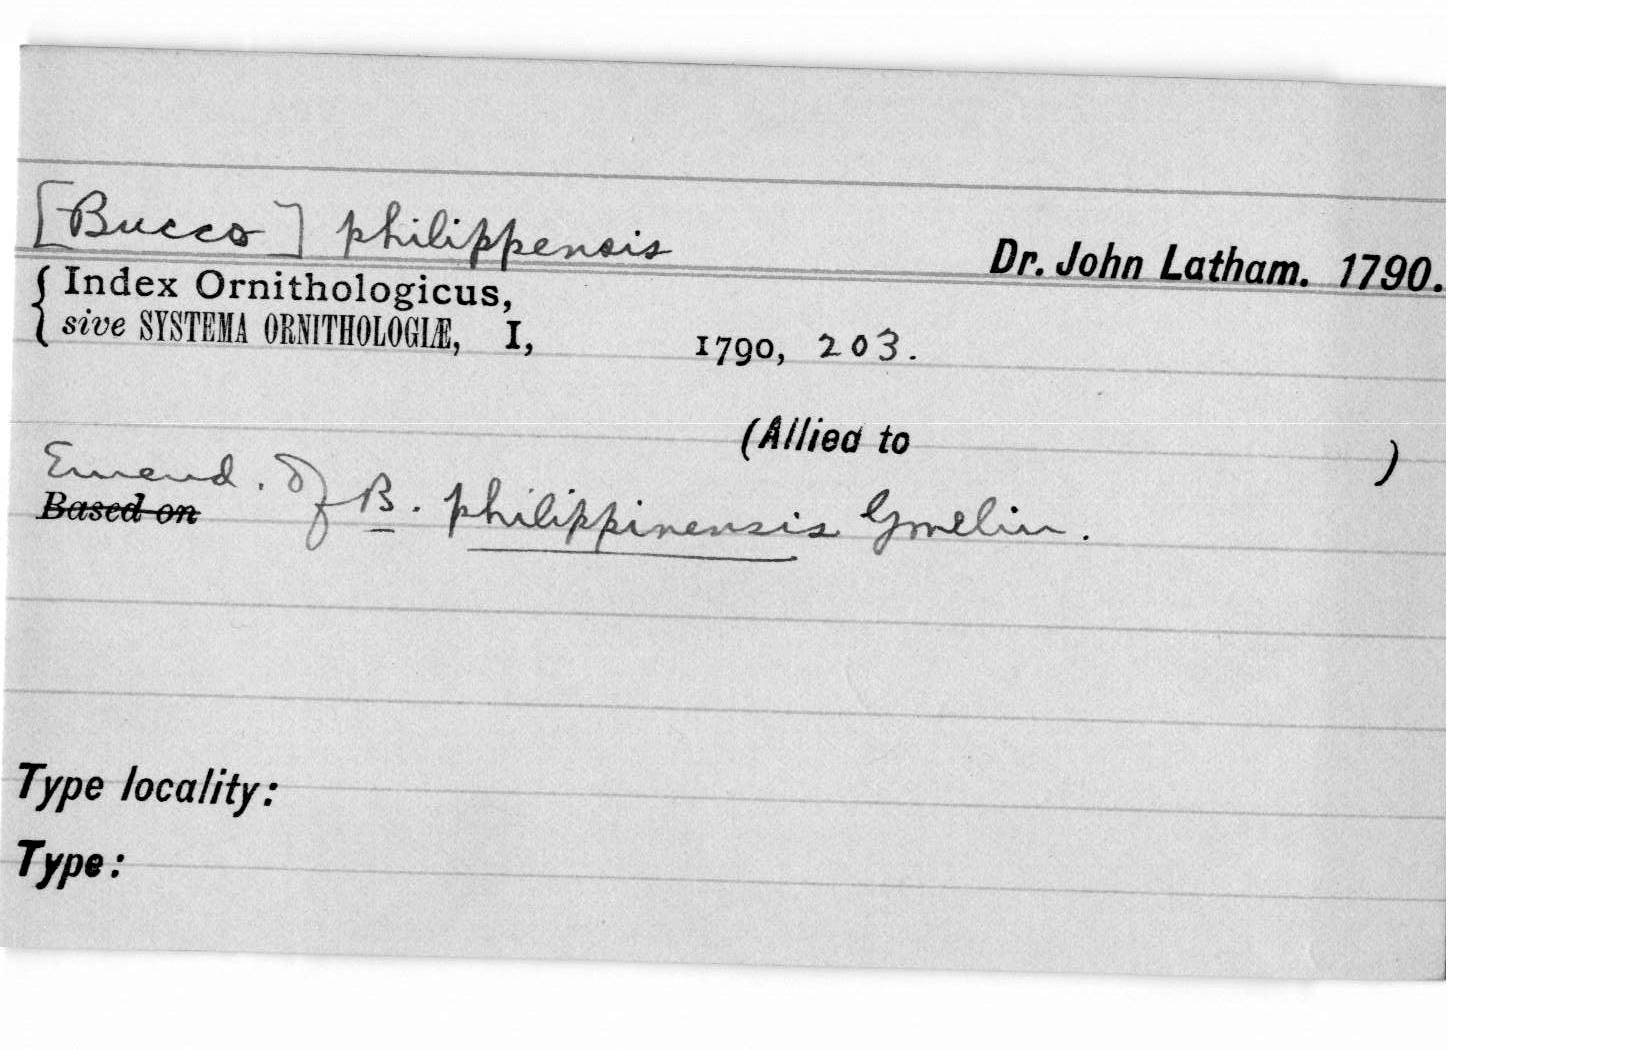 [Bucco] philippensis Dr. John Latham. 1790.
Index Ornithologicus,
sive SYSTEMA ORNITHOLOGIÆ, I, 1790, 203.
(Allied to )
Emend. of B. philippinensis Gmelin.
Based on
Type locality:
Type: